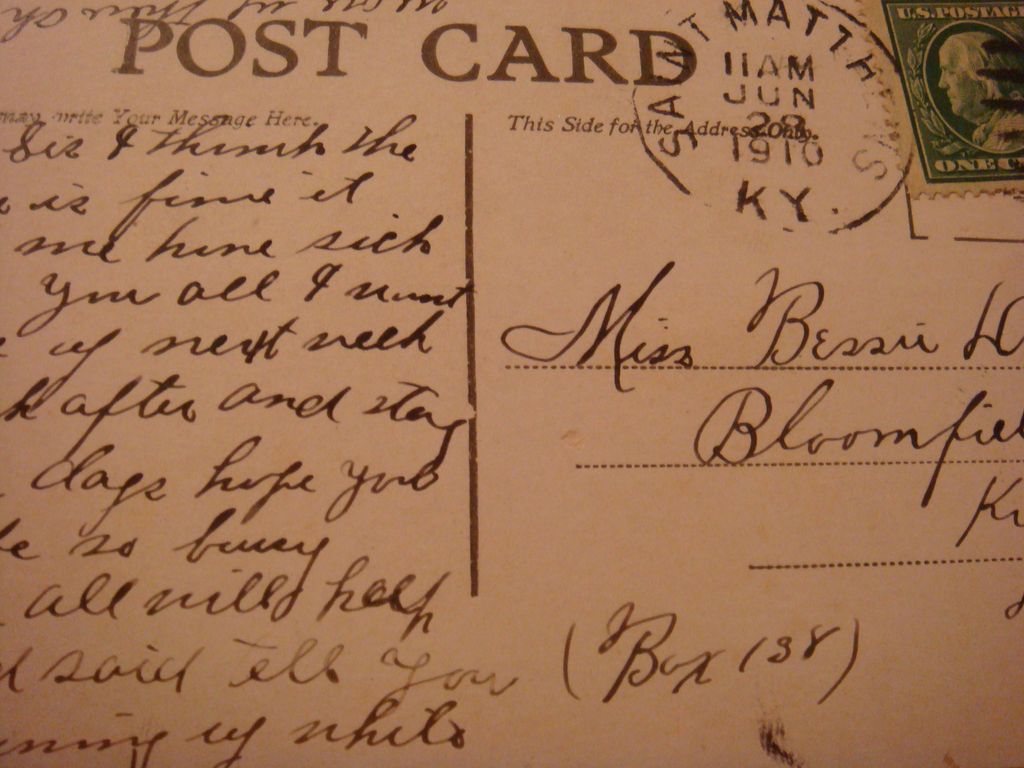 POST CARD
may write Your Message Here.
This Side for the Address Only.
SAINT MATTHEWS
11AM
JUN
28
1910
KY.
U.S. POSTAGE
ONE C
Sis & think the
is fine it
me home sick
you all & want
up next week
after and stay
days hope you
so busy
all will help
said tell you
up while
Miss Bessie
Bloomfiel
(Box 138)